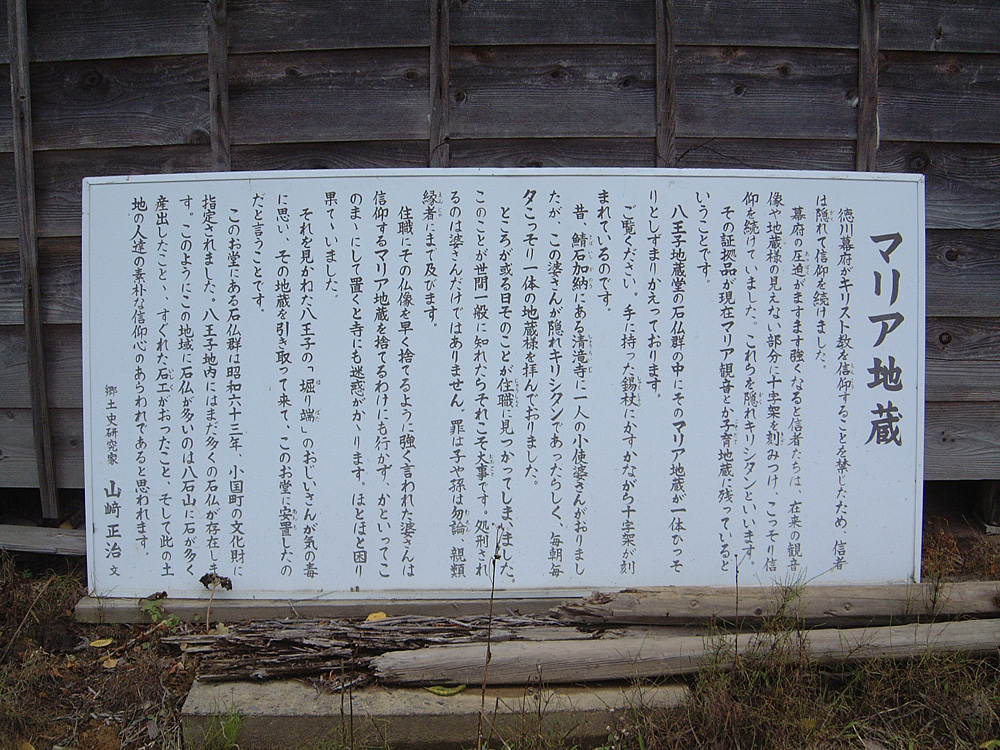 マリア地蔵
徳川幕府がキリスト教を信仰することを禁じたため、信者
は隠れて信仰を続けました。
幕府の圧迫がますます強くなると信者たちは、在来の観音
像や地蔵様の見えない部分に十字架を刻みつけ、こっそり信
仰を続けていました。これらを隠れキリシタンといいます。
その証拠品が現在マリア観音とか子育地蔵に残っていると
いうことです。
八王子地蔵堂の石仏群の中にそのマリア地蔵が一体ひっそ
りとしずまりかえっております。
ご覧ください。手に持った錫杖にかすかながら十字架が刻
まれているのです。
昔、鯖石加納にある清滝寺に一人の小使婆さんがおりまし
たが、この婆さんが隠れキリシタンであったらしく、毎朝毎
夕こっそり一体の地蔵様を拝んでおりました。
ところが或る日そのことが住職に見つかってしまいました。
このことが世間一般に知れたらそれこそ大事です。処刑され
るのは婆さんだけではありません。罪は子や孫は勿論、親類
縁者にまで及びます。
住職にその仏像を早く捨てるように強く言われた婆さんは
信仰するマリア地蔵を捨てるわけにも行かず、かといってこ
のまゝにして置くと寺にも迷惑がかゝります。ほとほと困り
果てゝいました。
それを見かねた八王子の「堀り端」のおじいさんが気の毒
に思い、その地蔵を引き取って来て、このお堂に安置したの
だと言うことです。
このお堂にある石仏群は昭和六十三年、小国町の文化財に
指定されました。八王子地内にはまだ多くの石仏が存在しま
す。このようにこの地域に石仏が多いのは八石山に石が多く
産出したことゝ、すぐれた石工がおったこと、そして此の土
地の人達の素朴な信仰心のあらわれであると思われます。
郷土史研究家 山崎正治 文